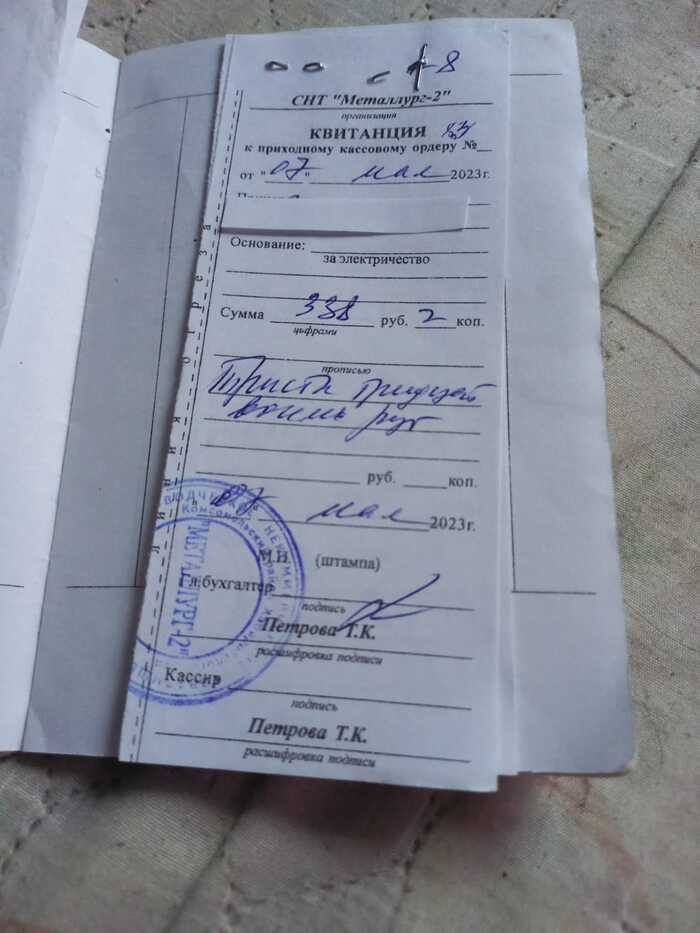 СНТ "Металлург-2"
организация
КВИТАНЦИЯ
к приходному кассовому ордеру № 53
от "07" мая 2023г.
Основание:
за электричество
Сумма 338 руб. 2 коп.
цифрами
прописью
Триста тридцать
восемь руб
руб. коп.
"07" мая 2023г.
М.П. (штампа)
Гл.бухгалтер
подпись
Петрова Т.К.
расшифровка подписи
Кассир
подпись
Петрова Т.К.
расшифровка подписи
линия отреза
"МЕТАЛЛУРГ-2"
Комсомольский